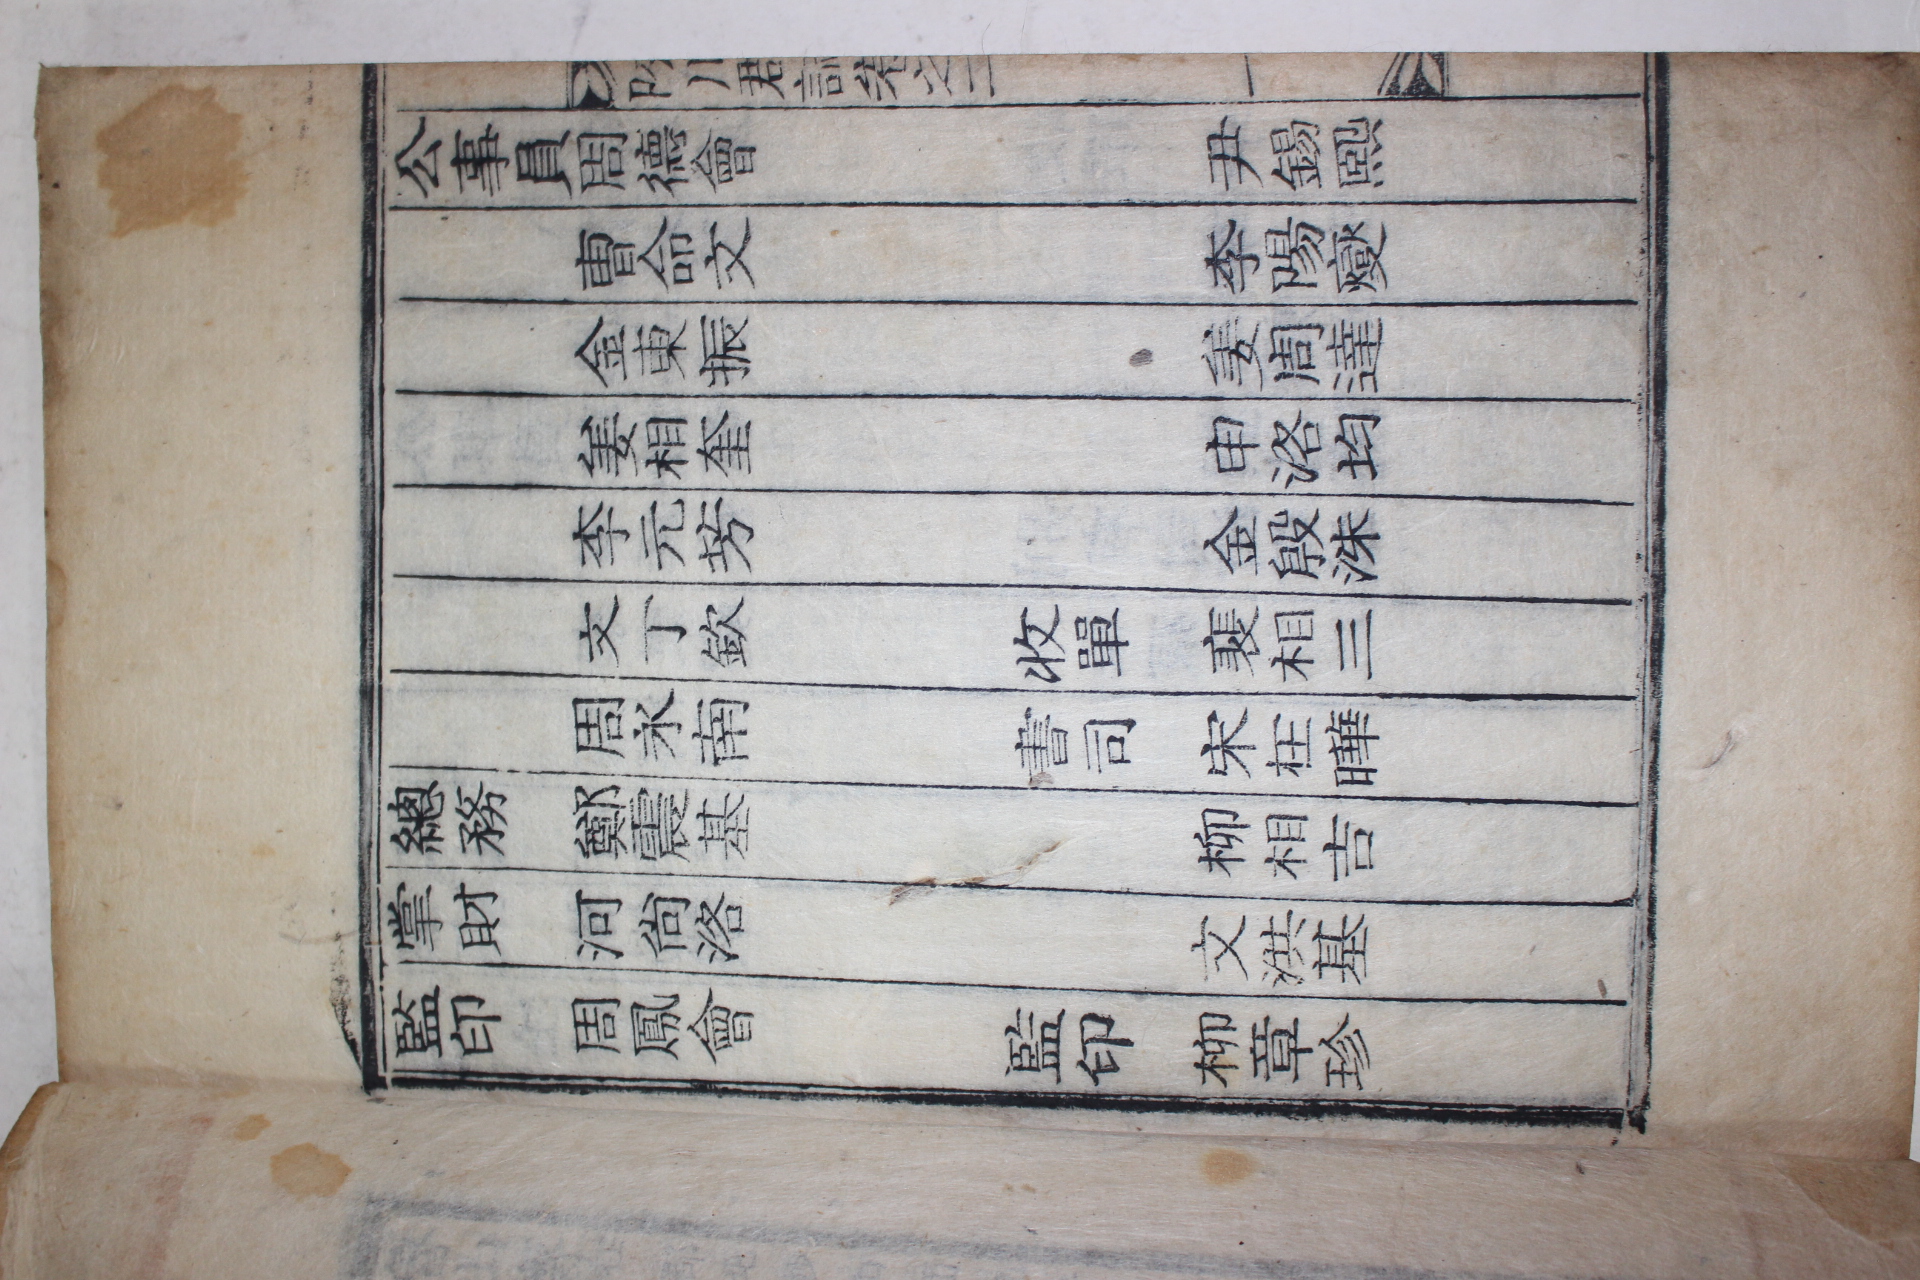 陜川郡誌卷之二
一
公事員周德會 尹錫熙
曺命文 李陽燮
金東振 姜周達
姜相奎 申洛均
李元芳 金殷洙
文丁欽 收單 裵相三
周永南 書司 宋在曄
總務 鄭震基 柳相吉
掌財 河尙洛 文洪基
監印 周鳳會 監印 柳章珍